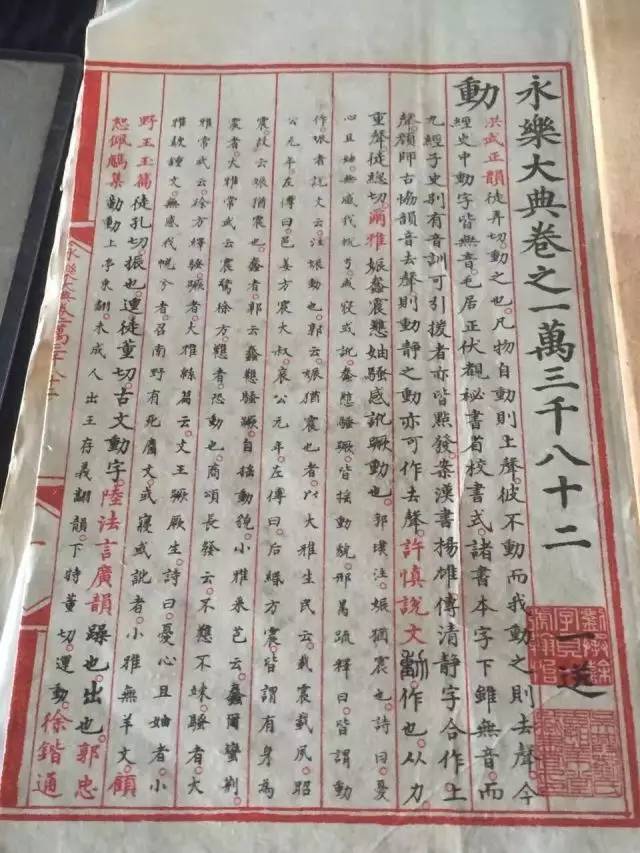 永樂大典卷之一萬三千八十二 一送
動
洪武正韻徒弄切。動之也。凡物自動則上聲。彼不動而我動之則去聲。今
經史中動字皆無音。毛居正伏覩秘書省校書式。諸書本字下雖無音。而
九經子史別有音訓可引援者亦皆點發。案漢書揚雄傳清靜字合作上
聲。顏師古協韻音去聲則動靜之動亦可作去聲。許慎說文動作也。从力
重聲徒總切。爾雅娠蠢震戁妯騷感訛蹶動也。郭璞注。娠猶震也。詩曰。憂
心且妯。無感我帨兮。或寢或訛。蠢戁騷蹶。皆搖動貌。邢昺疏釋曰。皆謂動
作。娠者說文云。注。娠動也。郭云。娠猶震也者。以大雅生民云。載震載夙。昭
公元年。左傳曰。邑姜方震大叔。哀公元年。左傳曰。后緡方震。皆謂有身為
震。故云娠猶震也。蠢者。郭云。蠢戁騷蹶。自搖動貌。小雅采芑云。蠢爾蠻荊。
震者。大雅常武云。震驚徐方。戁者。恐動也。商頌長發云。不戁不竦。騷者。大
雅常武云。徐方繹騷。蹶者。大雅緜篇云。文王蹶厥生。詩曰。憂心且妯者。小
雅鼓鍾文。無感我帨兮者。召南野有死麕文。或寢或訛者。小雅無羊文。顧
野王玉篇徒孔切。振也。運徒董切。古文動字。陸法言廣韻躁也。出也。郭忠
恕佩觿集動動上亭東翻。未成人。出王存義翻韻。下特董切。運動。徐鍇通
永樂大典卷一萬三千八十二